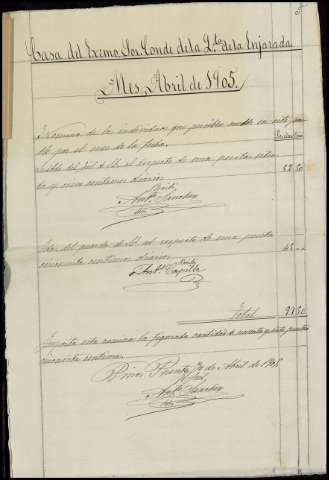 Casa del Exmo Sor Conde de la Qta de la Enjarada
Mes, Abril de 1905.
Nomina de los individuos que perciben sueldo en esta
por el mes de la fecha. Pesetas
del de al respecto de una peseta setenta
y cinco centimos diarios 52 50
Recibi
Anto Sanchez
Idem del guarda de al respecto de una peseta
cincuenta centimos diarios 45
Recibi
Anto Capilla
Total 97 50
Importa esta nomina la figurada cantidad de noventa y siete pesetas
cincuenta centimos.
Pinos Puente de Abril de 1905
Anto Sanchez